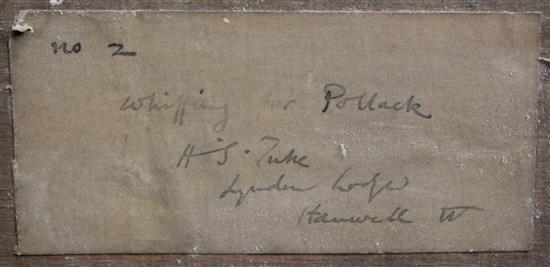 no 2
Whiffing for Pollack
H. S. Tuke
Lynden Lodge
Hanwell W